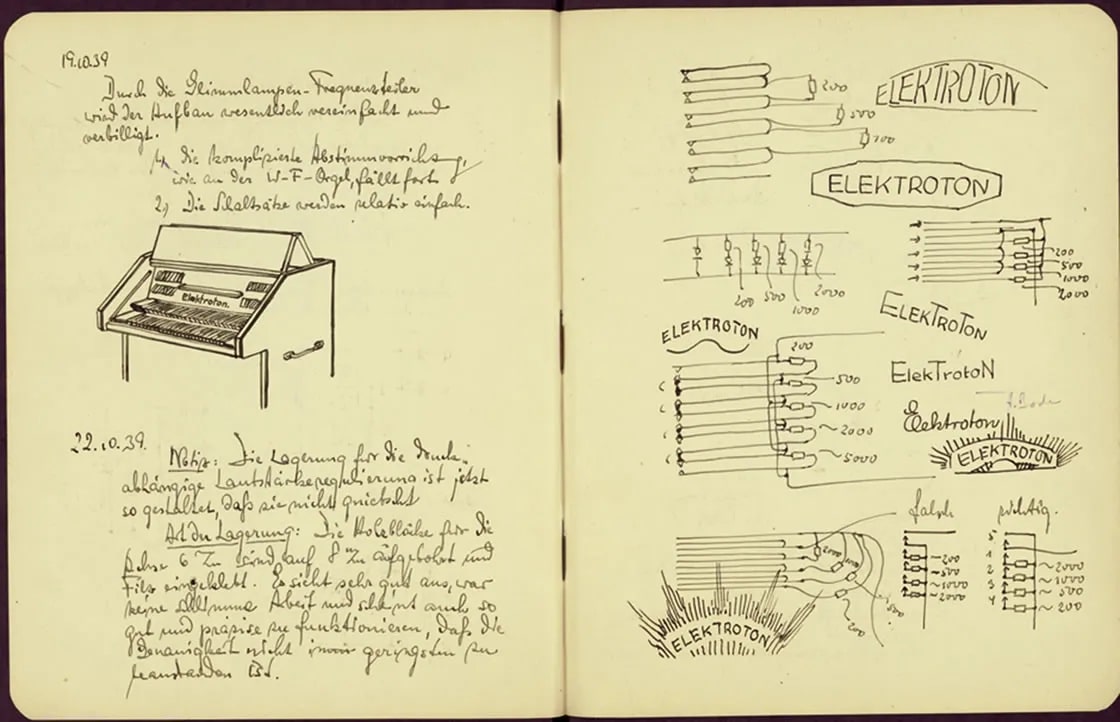 19.10.39
Durch die Glimmlampen-Frequenzteiler
wird der Aufbau wesentlich vereinfacht und
verbilligt.
1, die komplizierte Abstimmvorrichtung,
wie an der W-F-Orgel, fällt fort
2, Die Schaltsätze werden relativ einfach.
Elektroton.
22.10.39.
Notiz: Die Lagerung für die druck-
abhängige Lautstärkeregulierung ist jetzt
so gestaltet, daß sie nicht quietscht
Art der Lagerung: Die Holzblöcke für die
6 sind auf 8 aufgebohrt und
Filz eingeklebt. Es sieht sehr gut aus, war
keine schlimme Arbeit und scheint auch so
gut und präzise zu funktionieren, daß die
Genauigkeit nicht im geringsten zu
beanstanden ist.
200
500
700
ELEKTROTON
ELEKTROTON
200
500
1000
2000
200
500
1000
2000
ELEKTROTON
ELEKTROTON
200
500
1000
2000
5000
ElekTrotoN
Elektroton
ELEKTROTON
falsch
richtig.
2000
500
200
200
500
1000
2000
5
1
2
3
4
2000
1000
500
200
ELEKTROTON